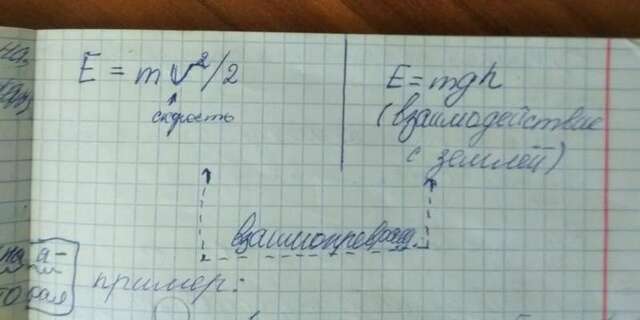 E = mv²/2
скорость
E = mgh
(взаимодействие
с землёй)
взаимопревращ.
пример: